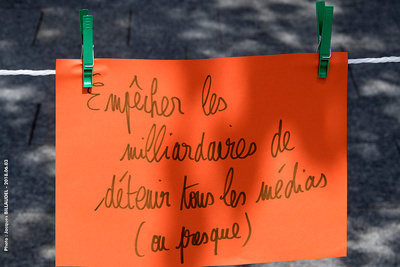 Empêcher les
milliardaires de
détenir tous les médias
(ou presque)
Photo : Jacques BILLAUDEL - 2018.06.02